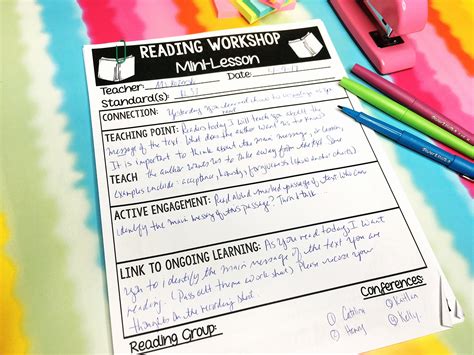 READING WORKSHOP
MINI-LESSON
Teacher: Date:
Standard(s):
CONNECTION: Yesterday
TEACHING POINT: Readers today I will teach you about the
message of the text. What does the author want us to know?
It is important to think about the main message, or lesson,
TEACH the author wants us to take away from the text.
Examples include: acceptance, honesty, forgiveness (
ACTIVE ENGAGEMENT: Read aloud passage of text. Who can
identify the main message of this passage? Turn & talk.
LINK TO ONGOING LEARNING: As you read today, I want
you to identify the main message of the text you are
reading. (Pass out theme worksheet) Please record your
thoughts on the recording sheet.
Conferences:
① Catalina ③ Kaitlin
② Henry ④ Kelly
Reading Group: